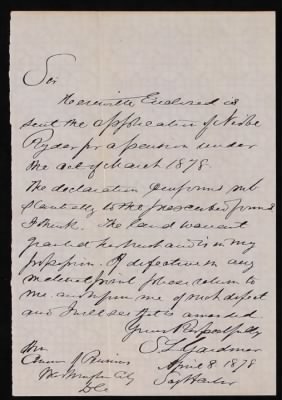 Sir
Herewith Enclosed is
sent the application of Niobe
Ryder for a pension under
the act of March 1878
The declaration Conforms sub
stantially to the prescribed form
I think. The land warrant
granted the husband is in my
possession. If defective in any
material point please return to
me and inform me of such defect
and I will see it is amended.
Yours Respectfully
S L Gardiner
April 8 1878
Sag Harbor
Hon
Washington City
D.C.